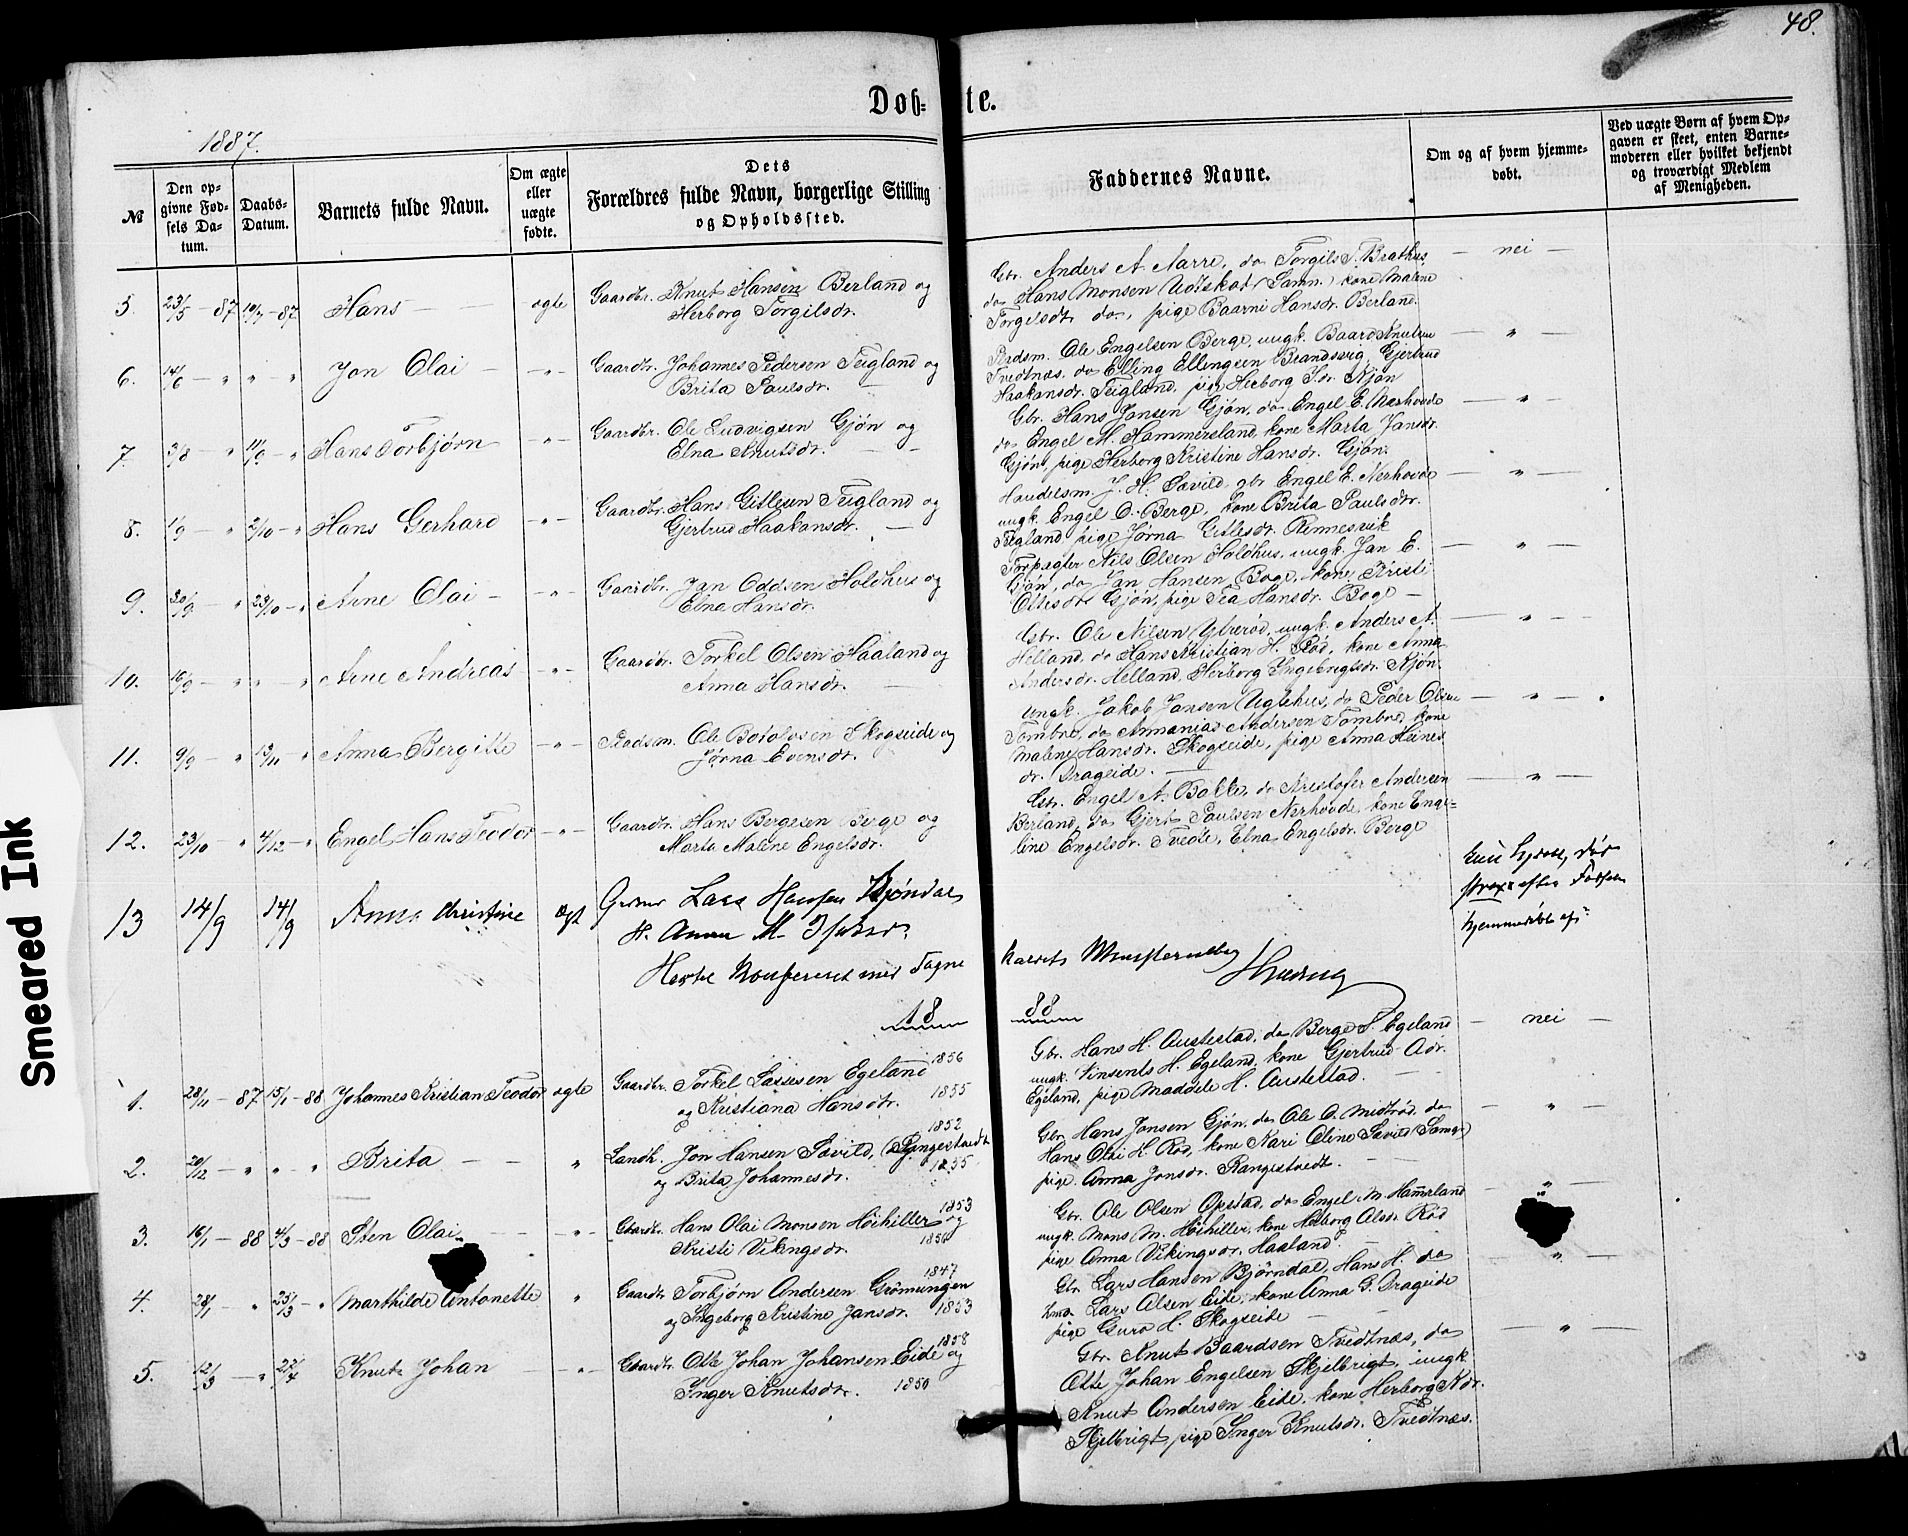 48.
Døb- te.
1887.
№
Den opgivne Fødsels Datum.
Daabs-Datum.
Barnets fulde Navn.
Om ægte eller uægte fødte.
Dets Forældres fulde Navn, borgerlige Stilling og Opholdssted.
Faddernes Navne.
Om og af hvem hjemmedøbt.
Ved uægte Børn af hvem Opgaven er skeet, enten Barnemoderen eller hvilket bekjendt og troværdigt Medlem af Menigheden.
5. 23/5 - 87 10/7 - 87 Hans - - ægte Gaardbr. Knut Hansen Berland og
Herborg Torgilsdr.
Gbr. Anders A. Aarre, do Torgils T. Brathus, - nei -
do Hans Monsen Udtskot (Samn.) kone Malene
Torgelsdt do, pige Baarni Hansdr. Berland.
6. 14/6 - " " - " Jon Olai - - " - Gaardbr. Johannes Pedersen Teigland og
Brita Paulsdr. -
Pladsm. Ole Engelsen Berge, ungk. Baard Knutsen - " -
Tvedtnæs, do Elling Ellingsen Brandsvig, Gjertrud
Haakansdr. Teigland, pige Herborg I.dr. Kjøn
7. 3/8 - " 11/9 - " Hans Torbjørn - " - Gaardbr. Ole Ludvigsen Gjøn og
Elna Knutsdr. - -
Gbr. Hans Jansen Gjøn, do Engel E. Nerhovde - " -
do Engel M. Hammersland, kone Marta Jansdr.
Gjøn, pige Herborg Kristine Hansdr. Gjøn.
8. 1/9 " 2/10 - " Hans Gerhard - " - Gaardbr. Hans Gitlesen Teigland og
Gjertrud Haakansdr. -
Handelsm. J. H. Sævild, gbr Engel E. Nerhovde - " -
ungk. Engel O. Berge, kone Brita Paulsdtr.
Teigland pige Jørna Gitlesdr. Rennesvik
9. 30/9 - " 23/10 - " Arne Olai - - " - Gaardbr. Jan Oddsen Holdhus og
Elna Hansdr.
Forpagter Nils Olsen Holdhus, ungk. Jan E. - " -
Gjøn, do Jan Hansen Boge, kone Kristi
Ottesdr Gjøn, pige Tea Hansdr. Boge -
10. 16/9 - " " - " Arne Andreas - " - Gaardbr. Torkel Olsen Haaland og
Anna Hansdr. -
Gbr. Ole Nilsen Ytrerød, ungk. Anders A. - " -
Helland, do Hans Kristian H. Rød, kone Anna
Andersdr. Helland, Herborg Ingebrigtsdr. Kjøn.
11. 9/9 - " 13/11 - " Anna Bergitte - " - Pladsm. Ole Botolvsen Skogseide og
Jørna Evensdr.
Ungk. Jakob Jansen Uglehus, do Peder Olsen - " -
Tombre, do Annanias Andersen Tombre, kone
Malene Hansdr. Skogseide, pige Anna Heines
dr. Drageide. -
12. 23/10 - " 4/12 - " Engel Hans Teodor - " - Gaardbr. Hans Bergesen Berge og
Marta Malene Engelsdr.
Gbr. Engel A. Bakke, do Kristofer Andersen - " -
Berland, do Gjert Paulsen Nerhovde, kone Enge-
line Engelsdr. Tvedte, Elna Engelsdr. Berge
13 14/9 14/9 Anna Christine ægt Lars Hansen Bjøndal
Anna M.
strax efter
hjemmedøbt af
med
18 88
1. 28/11 - 87 15/1 - 88 Johannes Kristian Teodor ægte Gaardbr. Torkel Lassesen Egeland 1856
og Kristiana Hansdtr. 1855
Gbr. Hans H. Austestad, do Berge S. Egeland - nei -
ungk. Vinsents H. Egeland, kone Gjertrud Adr.
Egeland, pige Maddele H. Austestad.
2. 20/12 - " " - " Brita - - " Landh. Jon Hansen Sævild, (Rangestvedt 1852
og Brita Johannesdr. 1855
Gbr. Hans Jonsen Gjøn, do Ole O. Midtrød, do - " -
Hans Olai H. Rød, kone Kari Oline Sævild (Samn)
pige Anna Jonsdr. Rangestvedt. -
3. 16/1 - 88 4/3 - 88 Sten Olai - - " - Gaardbr. Hans Olai Monsen Höihiller og 1853
Kristi Vikingsdr. 1856
Gbr. Ole Olsen Opstad, do Engel M. Hammrland - " -
ungk. Mons M. Höihiller, kone Herborg Olsdr Rød
pige Anna Vikingsdr. Haaland. -
4. 28/1 - " 25/3 - " Marthilde Antonette " Gaardbr Torbjørn Andersen Grönungen 1847
og Ingeborg Kristine Jansdr. 1853
Gbr. Lars Hansen Bjørndal, Hans H. do - " -
Lars Olsen Eide, kone Anna G. Drageide
pige Guro H. Skogseide -
5. 12/3 - " 22/4 Knut Johan - " - Gaardbr. Otte Johan Johansen Eide og 1858
Inger Knutsdr. 1850
Gbr. Knut Baardsen Tvedtnæs, do - " -
Otte Johan Engelsen Skjelbrigt, ungk
Knut Andersen Eide, kone Herborg Kdr.
Skjelbrigt pige Inger Knutsdr. Tvedtnæs.
Smeared Ink